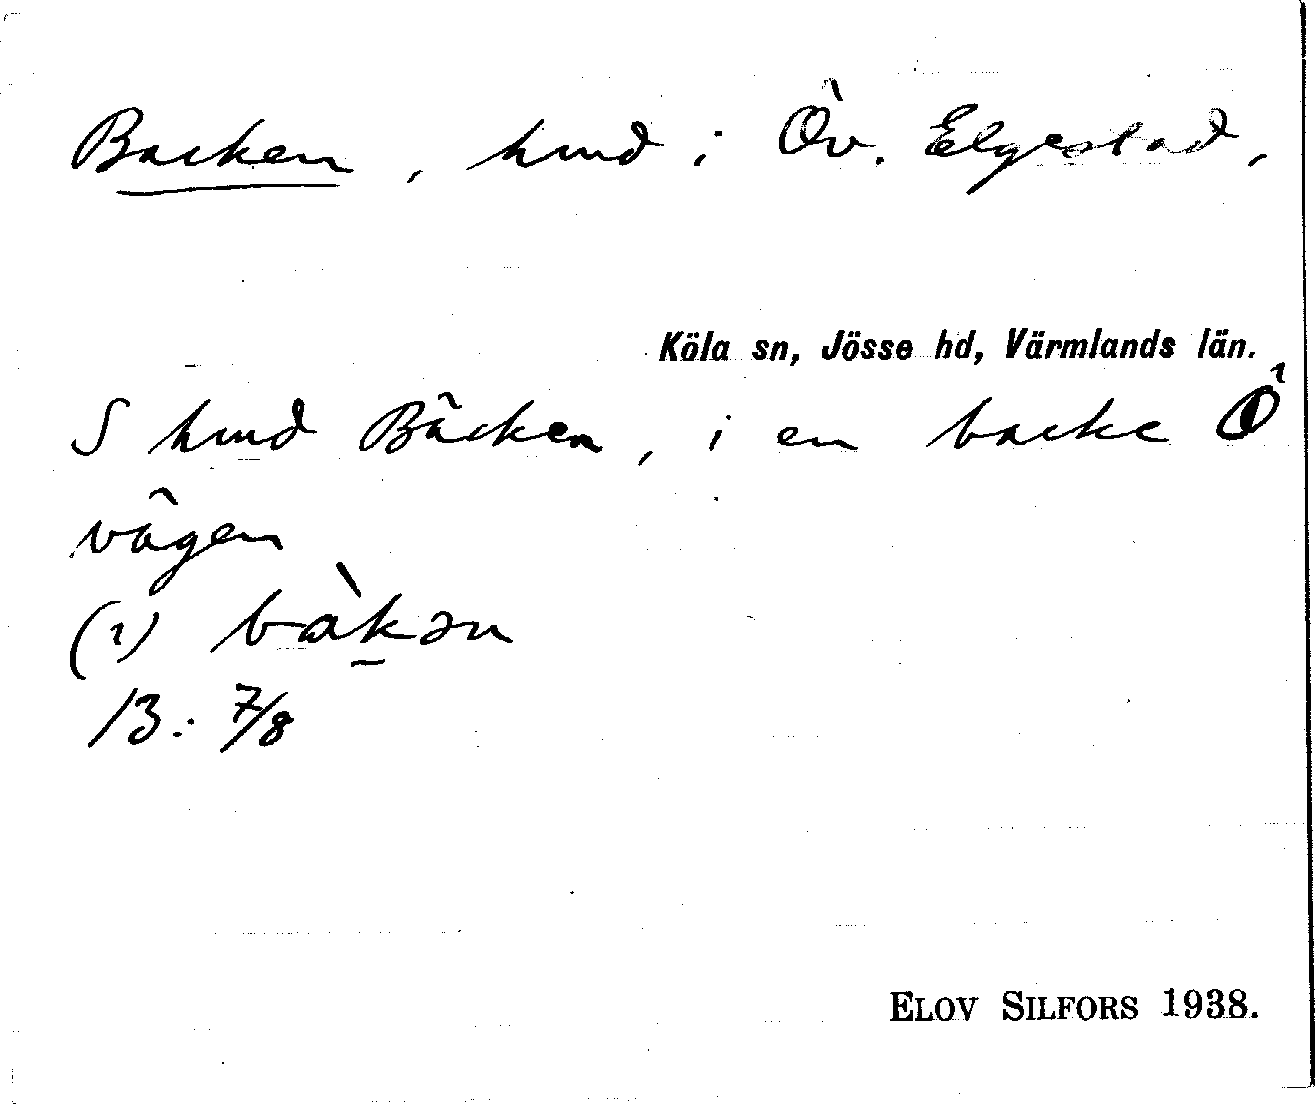 Backen, hmd i Öv. Elgestad,
Köla sn, Jösse hd, Värmlands län.
S hmd Bäcken, i en backe Ö
vägen
(1) bàkən
13: 7/8
ELOV SILFORS 1938.